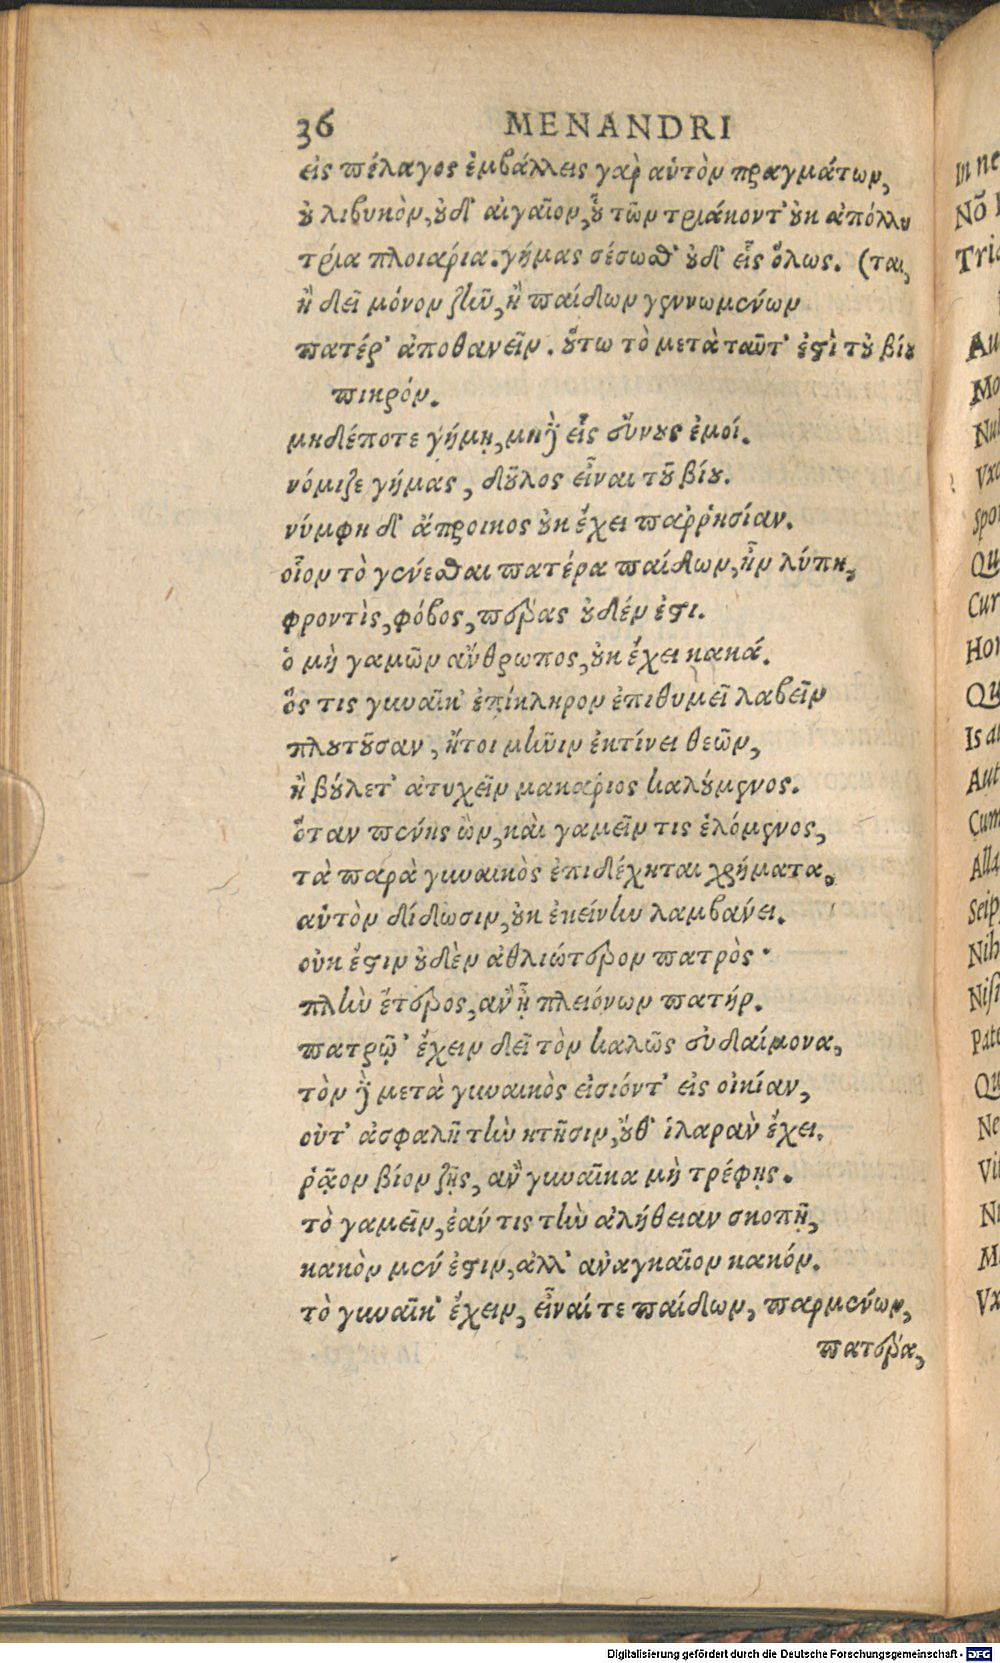 36 MENANDRI
εἰς πέλαγος ἐμβάλλεις γὰρ αὑτὸν πραγμάτων,
οὐ λιβυκὸν, οὐδ' αἰγαῖον, οὗ τῶν τριάκοντ' οὐκ ἀπόλλυ
τρία πλοιαρία. γήμας σέσωσθ' οὐδ' εἷς ὅλως. (ται,
ἢ δεῖ μόνον ζῆν, ἢ παίδων γεννωμένων
πατέρ' ἀποθανεῖν. οὕτω τὸ μετὰ ταῦτ' ἐστὶ τοῦ βίου
πικρόν.
μηδέποτε γήμῃ, μηδὲ εἷς εὔνους ἐμοί.
νόμιζε γήμας, δοῦλος εἶναι τοῦ βίου.
νύμφη δ' ἄπροικος οὐκ ἔχει παῤῥησίαν.
οἷον τὸ γενέσθαι πατέρα παίδων, ἦν λύπη,
φροντὶς, φόβος, πέρας οὐδέν ἐστι.
ὁ μὴ γαμῶν ἄνθρωπος, οὐκ ἔχει κακά.
ὅς τις γυναῖκ' ἐπίκληρον ἐπιθυμεῖ λαβεῖν
πλουτοῦσαν, ἤτοι μῆνιν ἐκτίνει θεῶν,
ἢ βούλετ' ἀτυχεῖν μακάριος καλούμενος.
ὅταν πένης ὢν, καὶ γαμεῖν τις ἑλόμενος,
τὰ παρὰ γυναικὸς ἐπιδέχηται χρήματα,
αὑτὸν δίδωσιν, οὐκ ἐκείνην λαμβάνει.
οὐκ ἔστιν οὐδὲν ἀθλιώτερον πατρὸς·
πλὴν ἕτερος, ἂν ᾖ πλειόνων πατήρ.
πατρῷ' ἔχειν δεῖ τὸν καλῶς εὐδαίμονα,
τὸν δὲ μετὰ γυναικὸς εἰσιόντ' εἰς οἰκίαν,
οὐτ' ἀσφαλῆ τὴν κτῆσιν, οὔθ' ἱλαρὰν ἔχει.
ῥᾷον βίον ζῇς, ἂν γυναῖκα μὴ τρέφῃς.
τὸ γαμεῖν, ἐάν τις τὴν ἀλήθειαν σκοπῇ,
κακὸν μέν ἐστιν, ἀλλ' ἀναγκαῖον κακόν.
τὸ γυναῖκ' ἔχειν, εἶναί τε παίδων, παρμένων,
πατέρα,
In ne
Nō
Tri
Au
Mo
Nu
Vxo
Spon
Qu
Cur
Hor
Qu
Is
Aut
Cum
All
Seip
Nih
Nisi
Pate
Qu
Ne
Vi
M
Vx
Digitalisierung gefördert durch die Deutsche Forschungsgemeinschaft - DFG